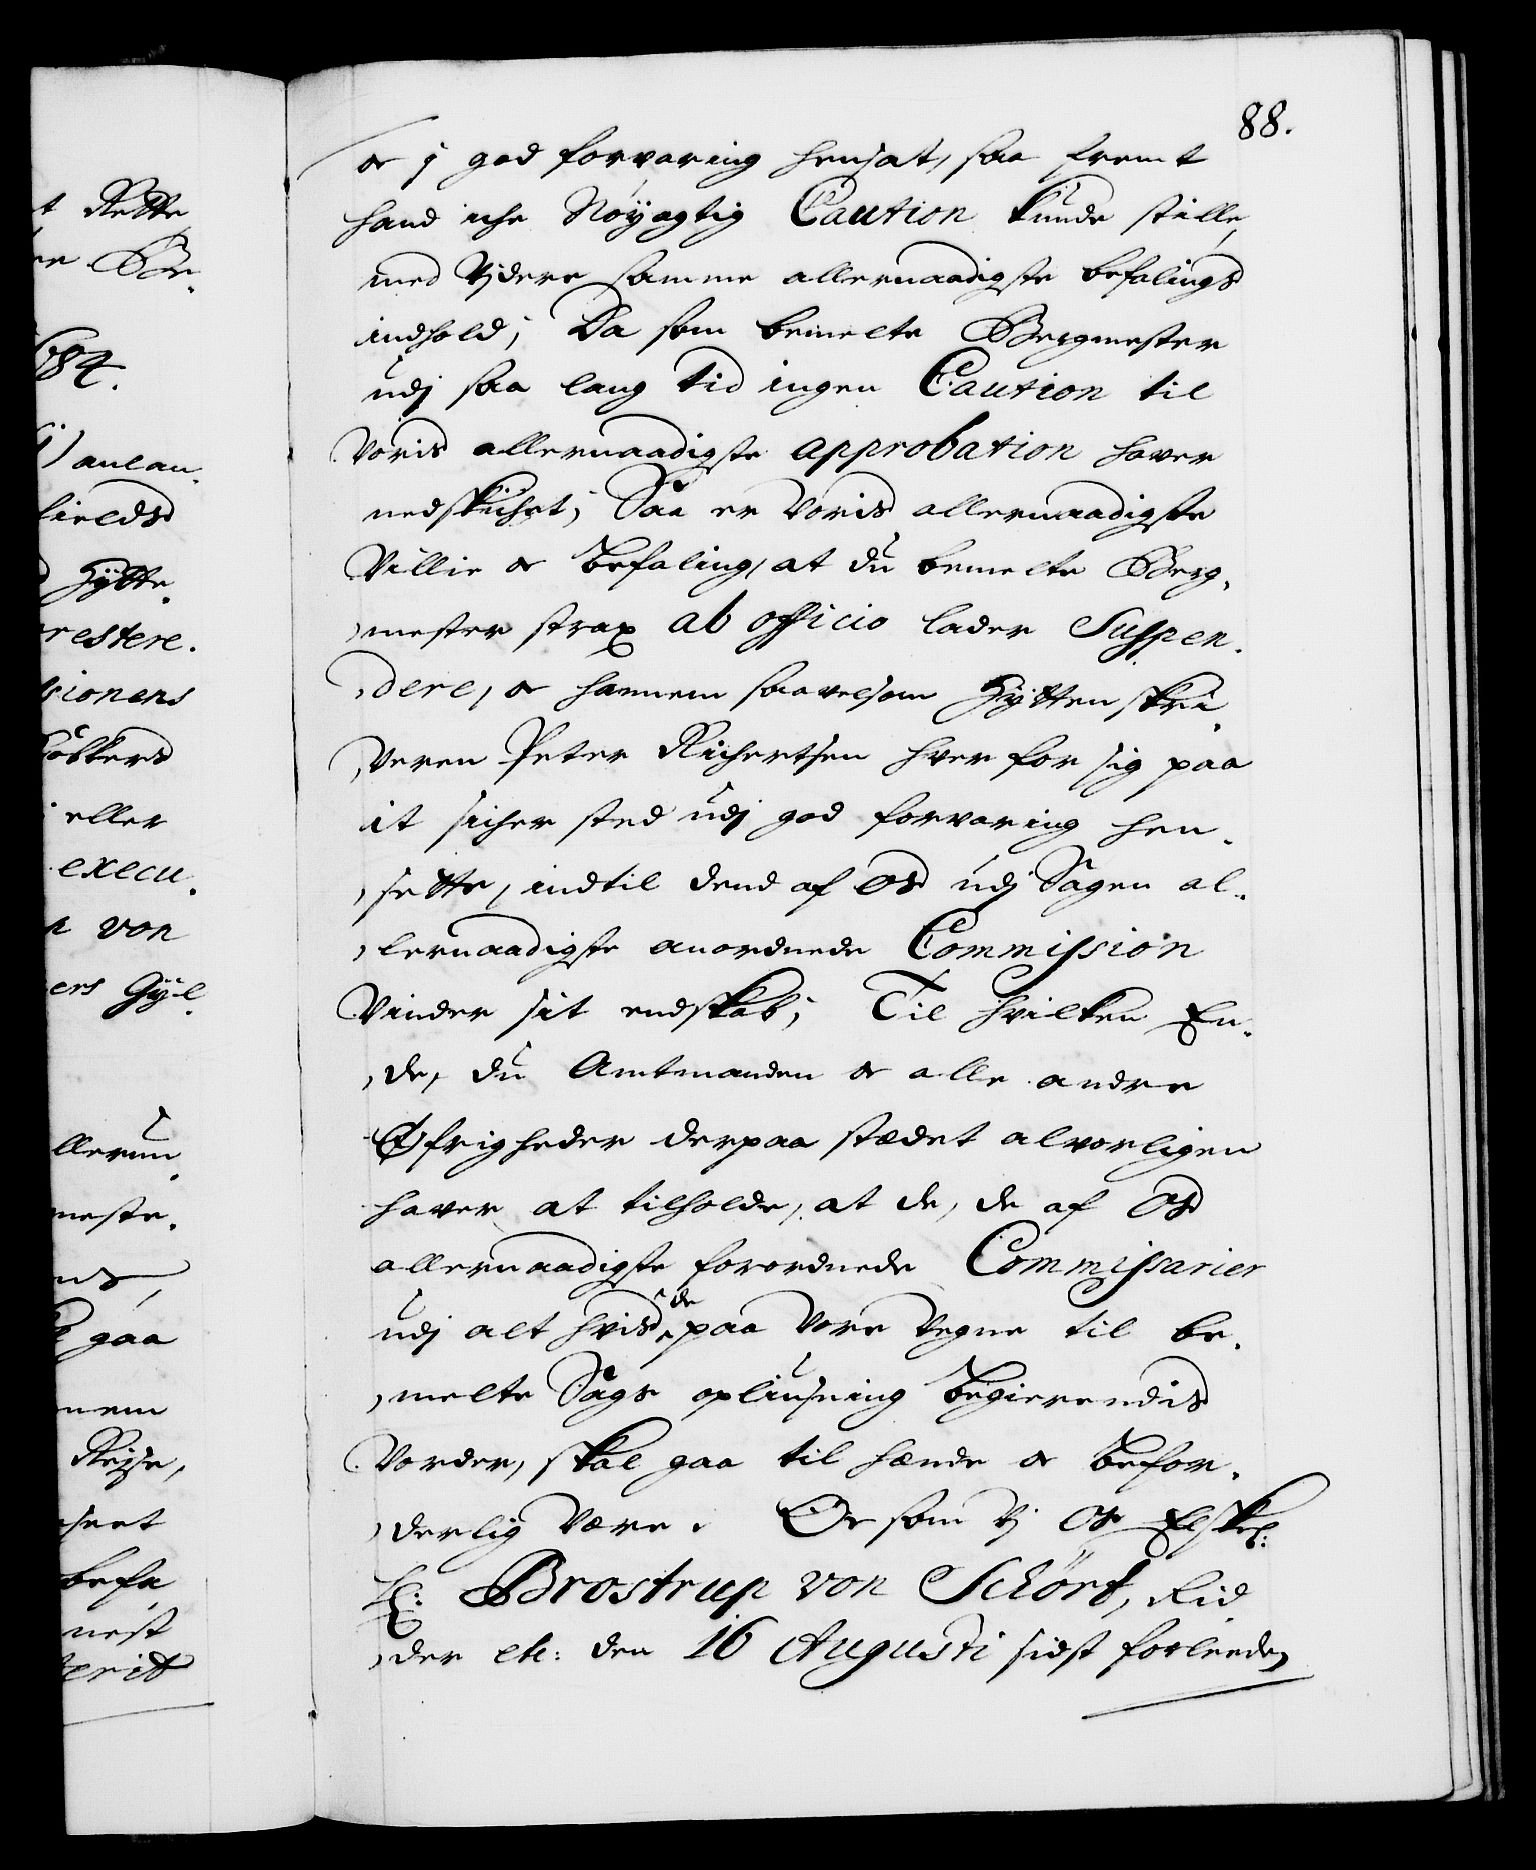 88.
og j god forvaring hensat, saa fremt
hand iche Nöyagtig Caution kunde stille,
med Videre samme allernaadigste befalings
indhold; Da som bemelte Bergmester
udj saa lang tid ingen Caution til
Voris allernaadigste approbation haver
nedskichet; Saa er Voris allernaadigste
Villie og Befaling, at du bemelte Berg-
mester strax ab officio lader Suspen-
dere, og hannem saavelsom Hyttenskri-
veren Peter Richertsen hver for sig paa
it sicher sted udj god forvaring hen-
sette, indtil dend af Os udj Sagen al-
lernaadigste anordnede Commission
Vinder sit endskab; Til hvilken En-
de, du Amtmanden og alle andre
Øfrigheder derpaa stædet alvorligen
haver at tilholde, at de, de af Os
allernaadigste forordnede Commissarier
udj alt hvis de paa Vore Vegne til be-
melte Sags opliusning begierendis
Vorder, skal gaa til hænde og befor-
derlig være. Og som Vj Os Elskel:
H: Brostrup von Schört, Rid
der etc: den 16 Augusti sidst forleeden
t Rette
Be-
1684.
anlan-
fields
Hytte-
restere.
sionens
eller
execu-
von
ers Gyl-
llerun-
meste-
gaa
nem
Reise,
befa